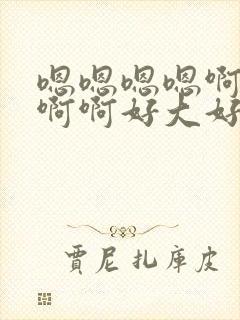 嗯嗯嗯嗯啊
啊啊好大好
賈尼扎庫皮